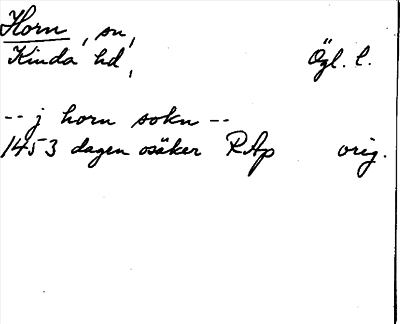 Horn, sn,
Kinda hd, Ögl. l.
-- j horn sokn --
1453 dagen osäker RAp orig.